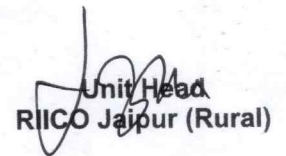 Unit Head
RIICO Jaipur (Rural)